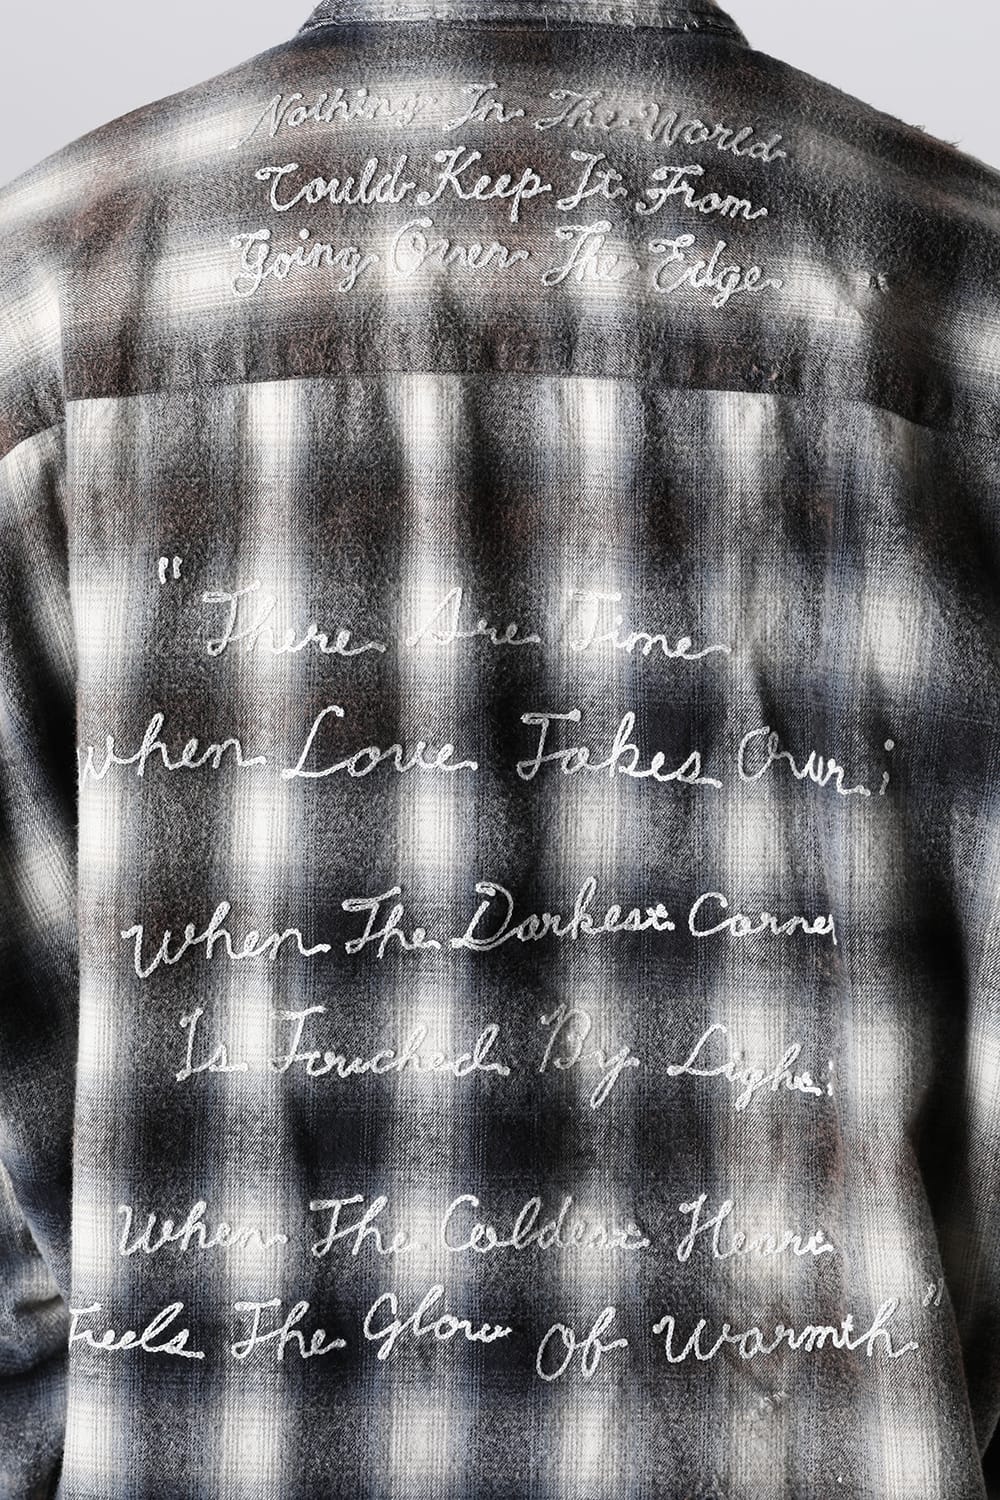 Nothing In The World
Could Keep It From
Going Over The Edge
"There Are Time
When Love Takes Over;
When The Darkest Corner
Is Touched By Light;
When The Coldest Heart
Feels The Glow Of Warmth"